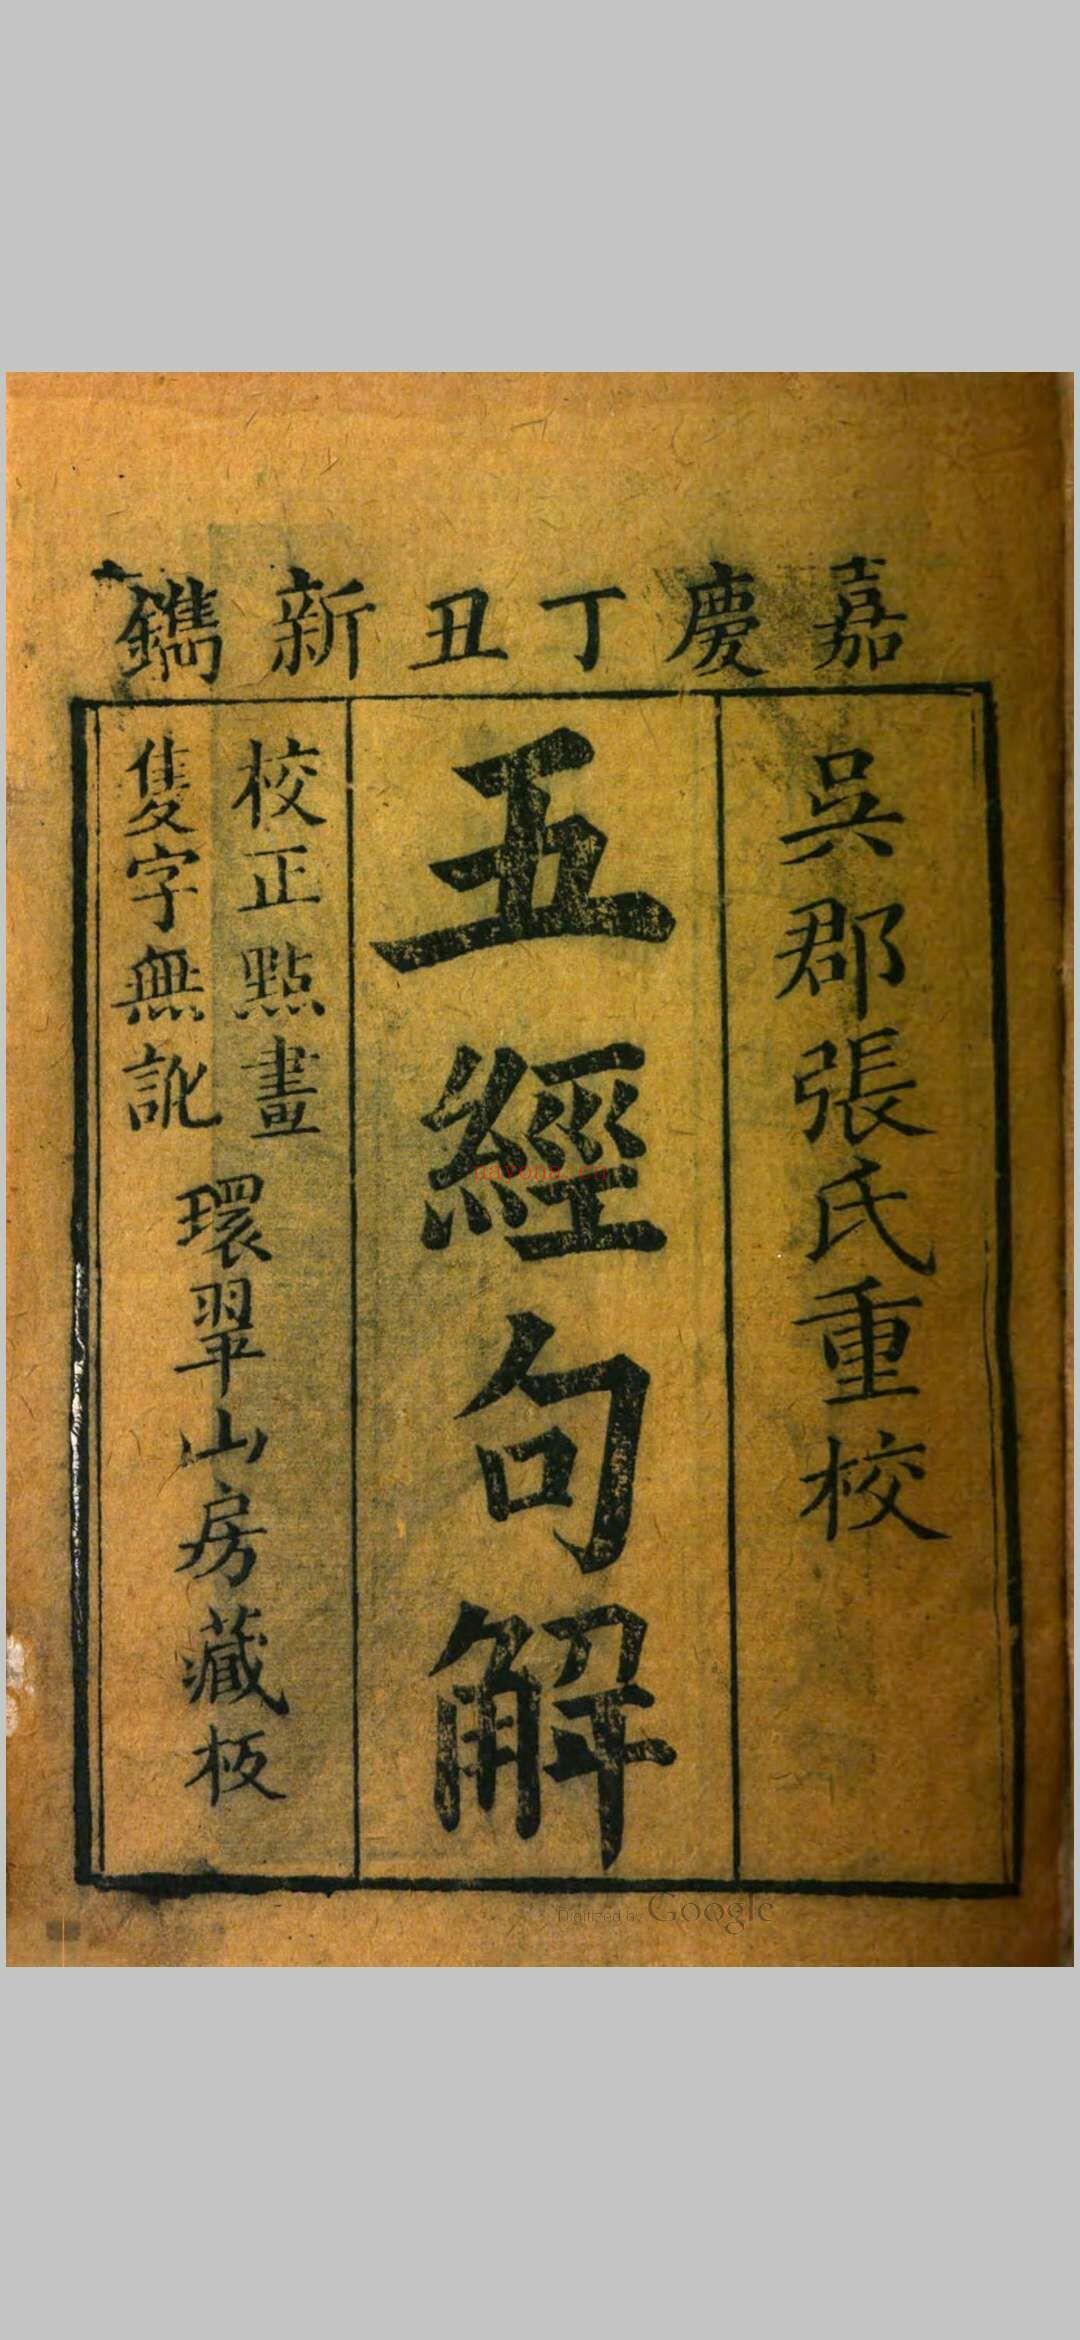 嘉慶丁丑新鐫
吳郡張氏重校
五經句解
校正點畫
隻字無訛
環翠山房藏板
nayona.cn
Digitized by Google